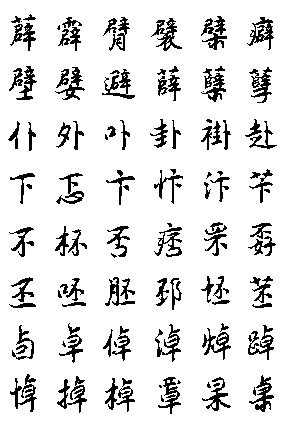 薜霹臂襞檗癖
壁嬖避薛蘖孽
仆外卟卦褂赴
下忑卞忭汴苄
不杯否痞罘孬
丕呸胚邳坯苤
卣卓倬淖焯踔
悼掉棹罩果桌